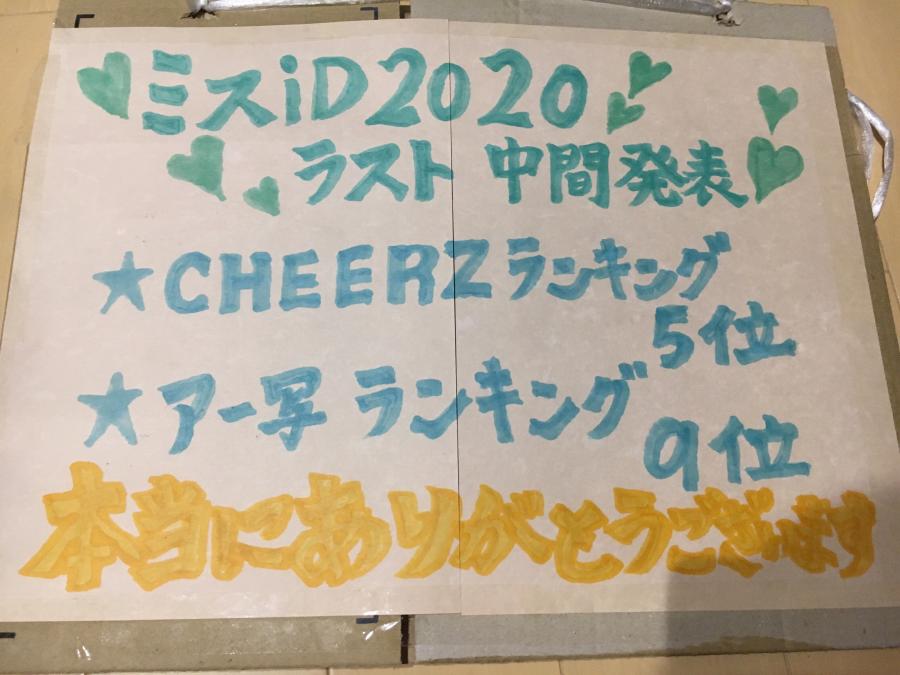 ミスiD2020
ラスト 中間発表
★CHEERZランキング
5位
★アー写 ランキング
9位
本当にありがとうございます